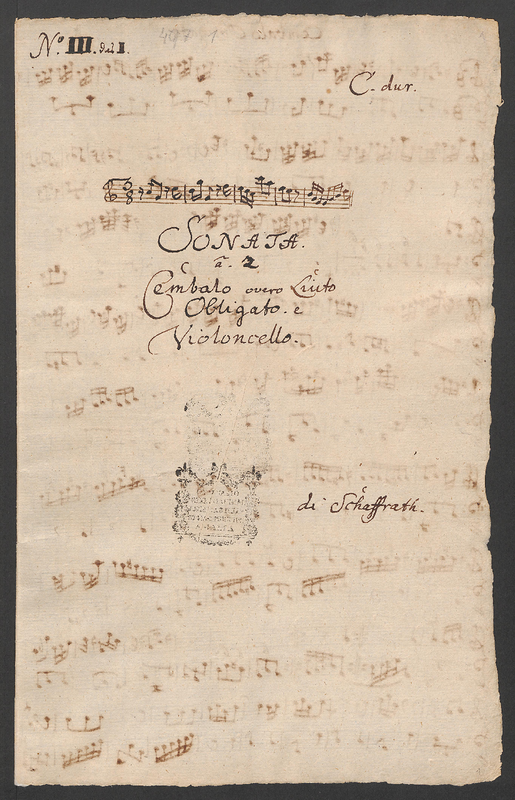 N.º III. dal I.
497 1
C. dur.
3
8
SONATA.
â. 2
Cembalo overo Liuto
Obligato. e
Violoncello.
di Schaffrath.